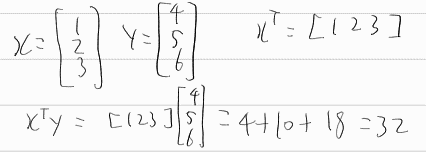 x = [1 2 3] y = [4 5 6] xᵀ = [1 2 3]
xᵀy = [1 2 3] [4 5 6] = 4 + 10 + 18 = 32